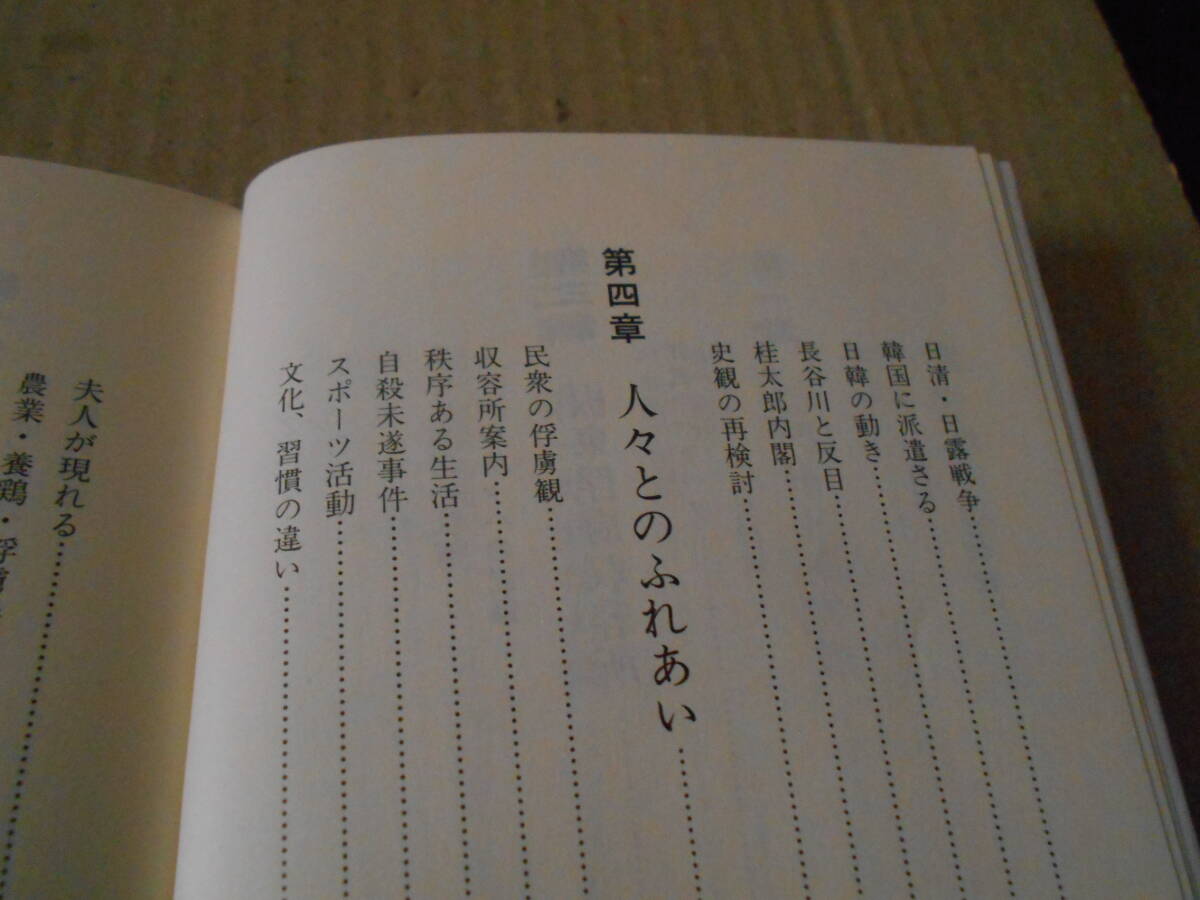 日清・日露戦争
韓国に派遣さる
日韓の動き
長谷川と反目
桂太郎内閣
史観の再検討
第四章 人々とのふれあい
民衆の俘虜観
収容所案内
秩序ある生活
自殺未遂事件
スポーツ活動
文化、習慣の違い
夫人が現れる
農業・養鶏・